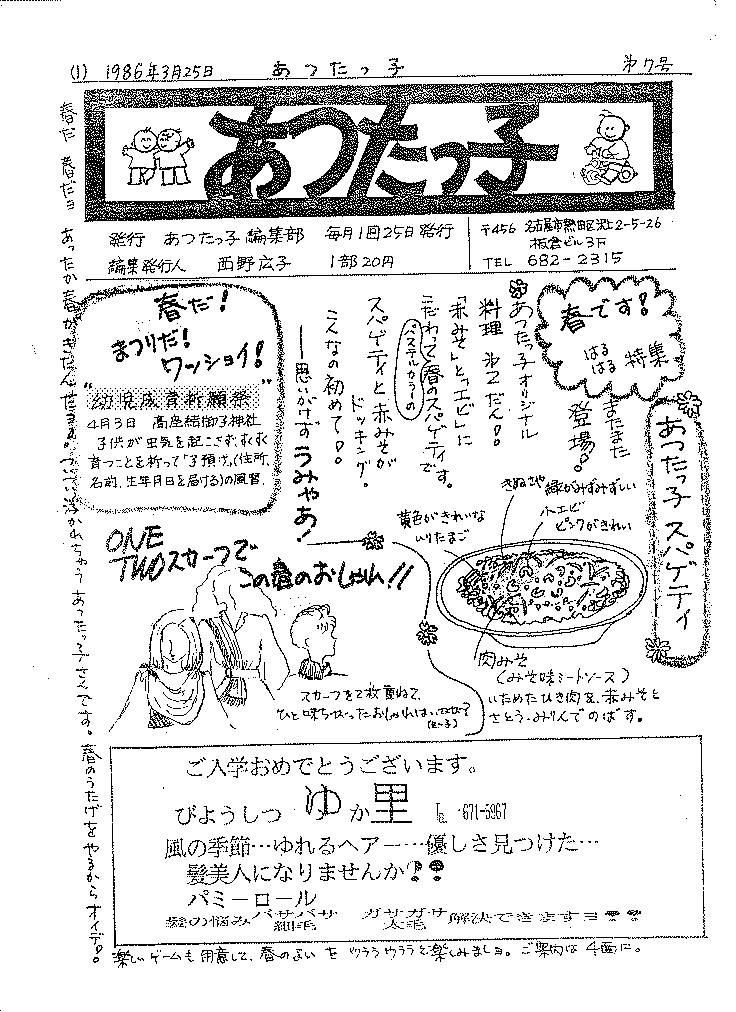 (1) 1986年3月25日 あつたっ子 第7号
あつたっ子
発行 あつたっ子編集部 毎月1回25日発行
編集発行人 西野広子 1部20円
〒456 名古屋市熱田区沢上2-5-26
板倉ビル3F
TEL 682-2315
春です!
はる
はる 特集
またまた
登場!
あつたっ子 スパゲティ
あつたっ子オリジナル
料理 第2だん!!
「赤みそ」と「エビ」に
こだわって春のスパゲティです。
パステルカラーの
スパゲティと赤みそが
ドッキング!
こんなの初めて!!
――思いがけず うみゃあ!
春だ!
まつりだ!
ワッショイ!
"幼児成育祈願祭"
4月3日 高座結御子神社
子供が虫気を起こさず、すくすく
育つことを祈って「子預け」(住所、
名前、生年月日を届ける)の風習。
きぬさや 緑がみずみずしい
小エビ
ピンクがきれい
黄色がきれいな
いりたまご
肉みそ
(みそ味ミートソース)
いためたひき肉を、赤みそと
さとう、みりんでのばす。
ONE
TWOスカーフで
この春のおしゃれ!!
スカーフを2枚重ねて、
ひと味ちがったおしゃれは、
ご入学おめでとうございます。
びようしつ ゆか里 ℡ 671-5967
風の季節…ゆれるヘアー…優しさ見つけた…
髪美人になりませんか??
パミーロール
髪の悩み バサバサ 細毛 ガサガサ 太毛 解決できますヨ??
春だ 春だヨ あったか春がきたんだヨ。
浮かれちゃう あつたっ子さんです。 春のうたげをやるからオイデ!
楽しいゲームも用意して、春のよいを ウララウララで楽しみましョ。ご案内は4面に。